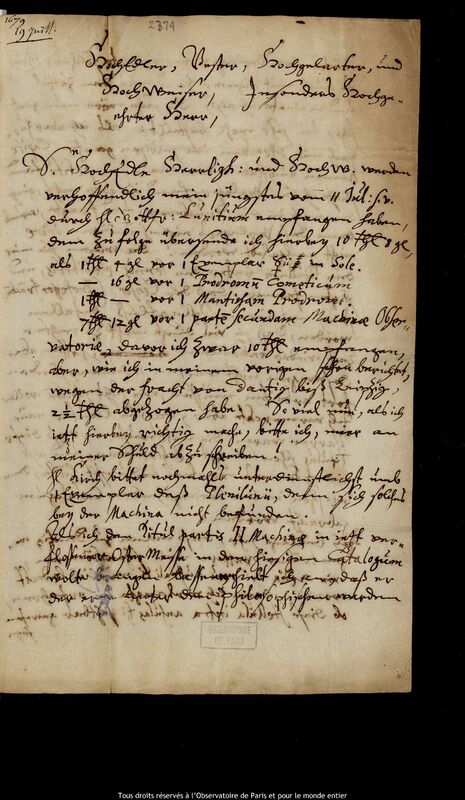 1679
19 Juill.
2374
HochEdler, Vester, Hochgelarter, und
HochWeiser, Insonders Hochge-
ehrter Herr,
HochEdle Herrligk: und HochW. werden
verhoffendlich mein jüngstes vom 11 Jul: s.v.
durch empfangen haben,
dem zu folge übersende ich hierbey 10 thl 8 gl,
als 1 thl 4 gl vor 1 Exemplar in Sole.
— 16 gl vor 1 Prodromu Cometicum
1 thl — vor 1 Mantissam Prodromi.
7 thl 12 gl vor 1 parte secundam Machinæ Obser-
vatoriæ, davor ich zwar 10 thl empfangen,
aber, wie ich in meinem vorigen schon berichtet,
wegen der fracht von dantzig biß Leipzig,
2½ thl abgezogen habe. So viel nun, als ich
ietzt hierbey richtig mache, bitte ich, mier an
meiner Schuld abzuschreiben!
H Kirch bittet nochmalls unterdienstlichst umb
1 Exemplar deß Plenilunii, denn sich solches
bey der Machina nicht befunden.
Als ich den Titul partis II Machinæ in ietzt ver-
flossener OsterMesse in den hiesigen Catalogum
wolte daß er
der philosophischen werden
OBSERVATOIRE
DE PARIS
Tous droits réservés à l'Observatoire de Paris et pour le monde entier